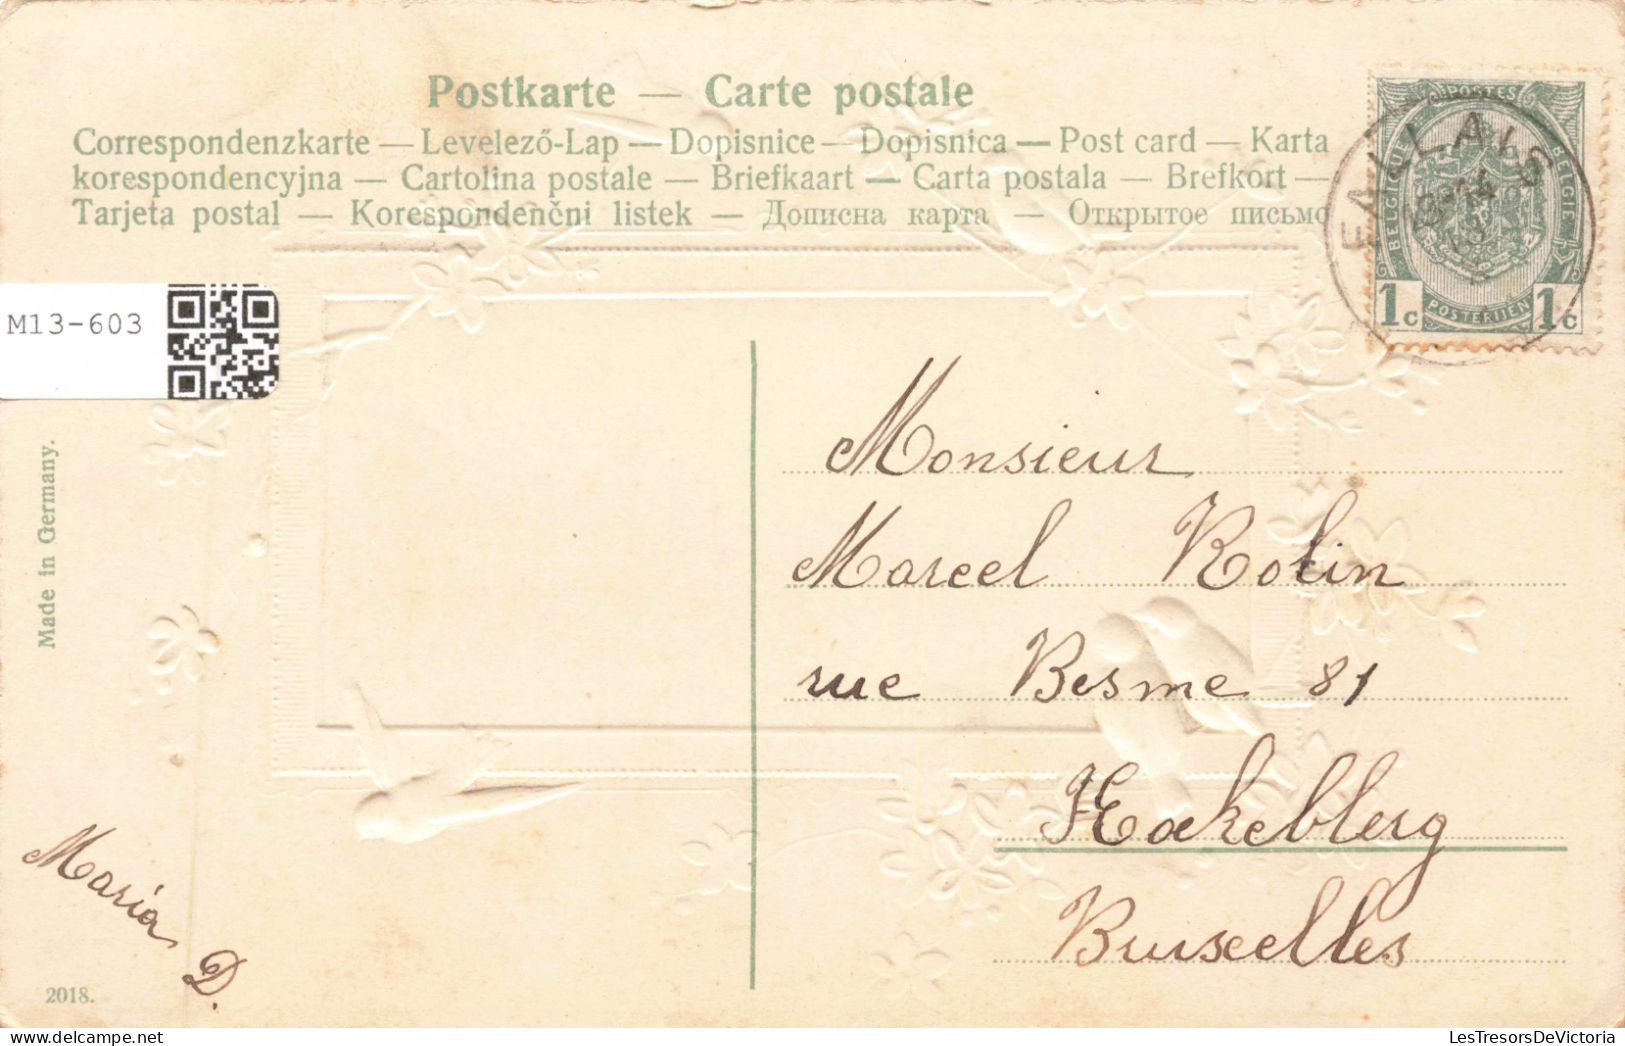 Postkarte — Carte postale
Correspondenzkarte — Levelező-Lap — Dopisnice — Dopisnica — Post card — Karta
korespondencyjna — Cartolina postale — Briefkaart — Carta postala — Brefkort —
Tarjeta postal — Korespondenčni listek — Дописна карта — Открытое письмо
POSTES
BELGIQUE
BELGIË
1c POSTERIJEN 1c
M13-603
Made in Germany.
Monsieur
Marcel Rolin
rue Besme 81
Koekelberg
Bruxelles
Maria D.
2018.
LesTresorsDeVictoria